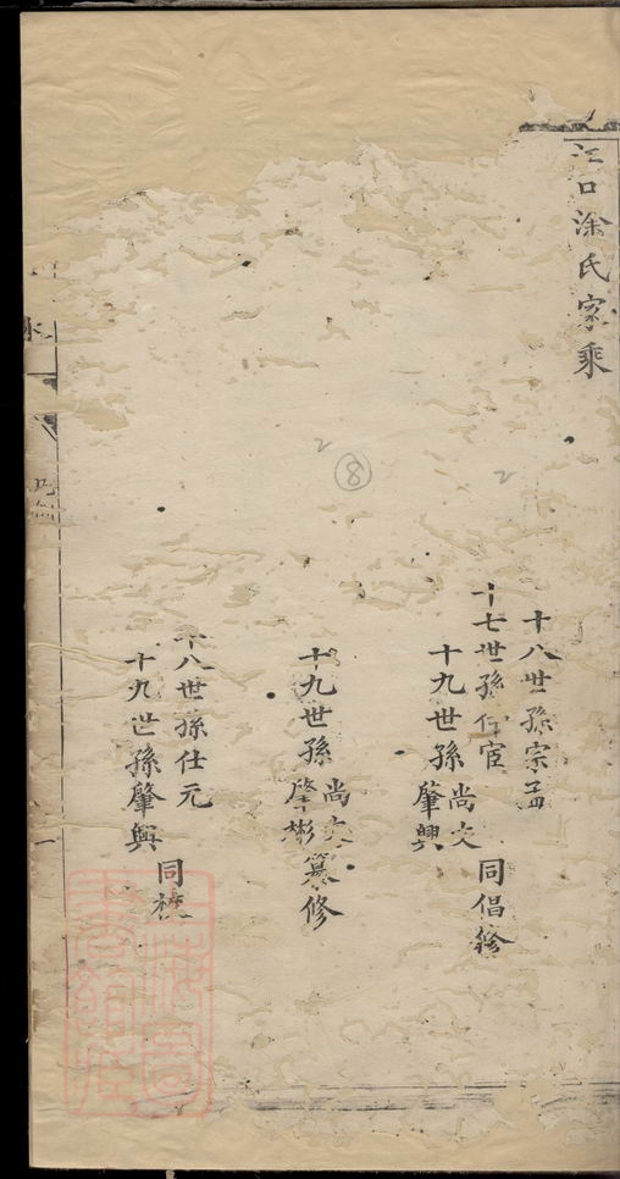 江口涂氏家乘
十八世孫宗孟
十七世孫仕宦
十九世孫尚文
肇興
同倡修
十九世孫尚文
肇彬
纂修
十八世孫仕元
十九世孫肇興
同校
⑧